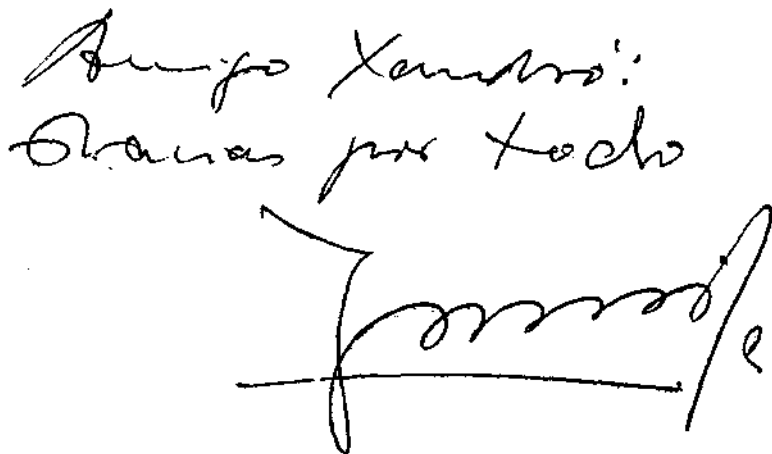 Amigo Xandró:
Gracias por todo